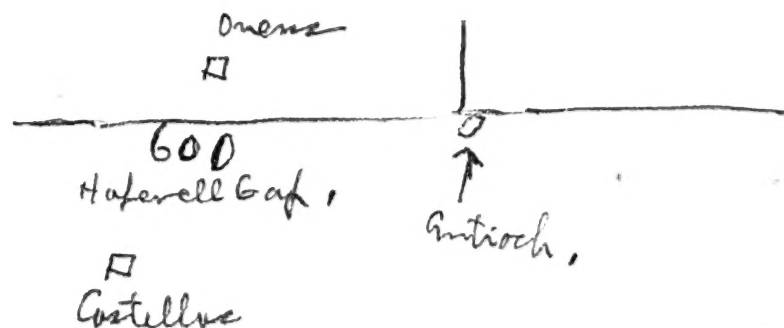 Owens
600
Hopewell Gap,
Antioch,
Costellos